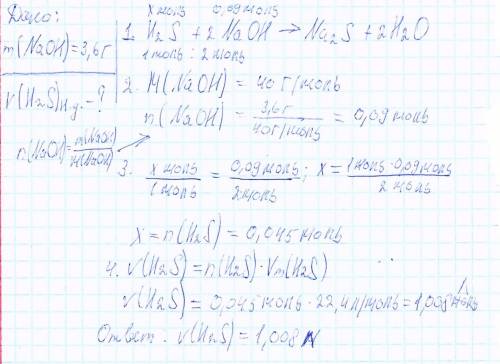 Дано:
m(NaOH)=3,6г
V(H₂S)н.у.-?
n(NaOH)=m(NaOH)/M(NaOH)
x моль 0,09моль
1. H₂S + 2NaOH → Na₂S + 2H₂O
1моль : 2моль
2. M(NaOH) = 40г/моль
n(NaOH) = 3,6г/40г/моль = 0,09моль
3. x моль/1моль = 0,09моль/2моль; x = 1моль·0,09моль/2моль
x = n(H₂S) = 0,045моль
4. V(H₂S) = n(H₂S)·Vm(H₂S)
V(H₂S) = 0,045моль·22,4л/моль = 1,008л
Ответ: V(H₂S) = 1,008л